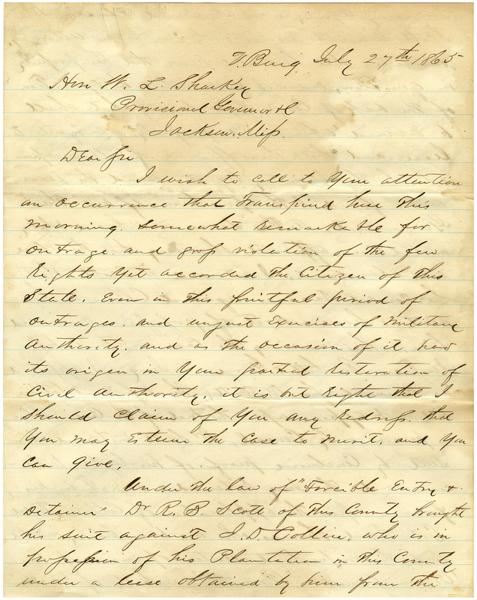 V.Burg July 27th 1865
Hon W. L. Sharkey
Provisional Governor &c
Jackson. Miss.
Dear Sir
I wish to call to your attention
an occurrence that Transpired here this
morning somewhat remarkable for
outrage and gross violation of the few
Rights Yet accorded the Citizen of this
State. Even in this fruitful period of
outrages. and unjust Exercises of Military
Authority. and as the occasion of it had
its origin in Your partial restoration of
Civil Authority, it is but Right that I
should claim of You any Redress. that
You may Esteem the case to merit. and You
can give.
Under the law of "Forcible Entry &
Detainer" Dr R. B Scott of this County brought
his suit against J. D. Collier, who is in
possession of his Plantation in this County
under a lease obtained by him from the